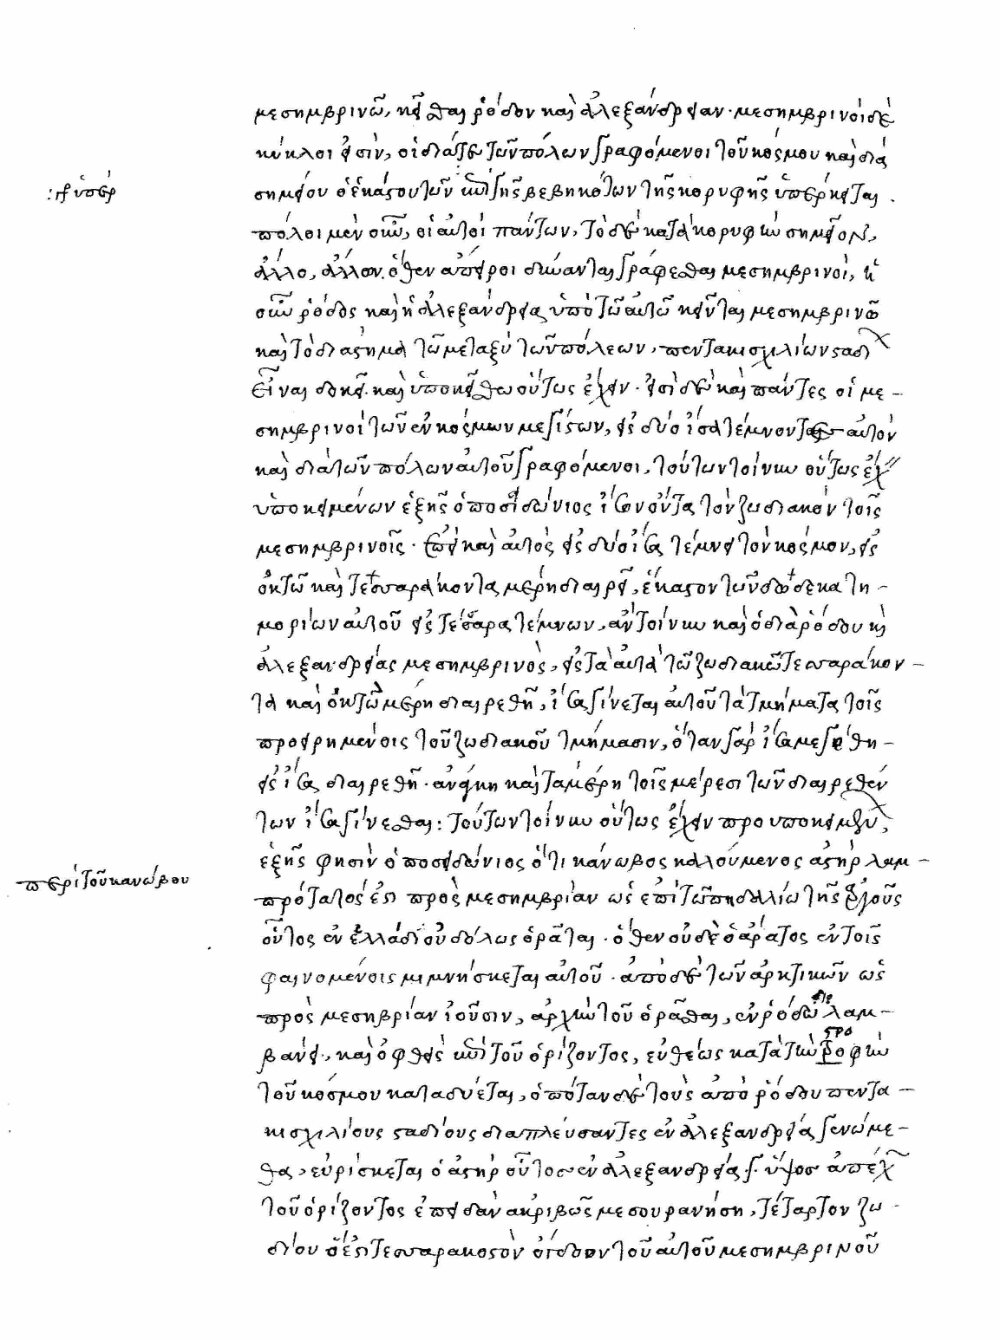 μεσημβρινῶ, κεῖσθαι ῥόδον καὶ ἀλεξάνδρειαν· μεσημβρινοὶ δὲ
κύκλοι εἰσὶν, οἱ διά τε τῶν πόλων γραφόμενοι τοῦ κόσμου καὶ διὰ
:ἢ ὑπὲρ
σημείου ὃ ἑκάστου τῶν ἐπὶ γῆς βεβηκότων τῆς κορυφῆς ὑπέρκειται.
πόλοι μὲν οὖν, οἱ αὐτοὶ πάντων, τὸ δὲ κατὰ κορυφὴν σημεῖον,
ἄλλο, ἄλλον. ὅθεν ἄπειροι δύνανται γράφεσθαι μεσημβρινοὶ, ἡ
οὖν ῥόδος καὶ ἡ ἀλεξάνδρεια, ὑπὸ τῶ αὐτῶ κεῖνται μεσημβρινῶ
καὶ τὸ διάστημα τὸ μεταξὺ τῶν πόλεων, πεντακισχιλίων σταδ
εἶναι δοκεῖ. καὶ ὑποκείσθω οὕτως ἔχειν· εἰσὶ δὲ καὶ πάντες οἱ με-
σημβρινοὶ τῶν ἐν κόσμω μεγίστων, εἰς δύο ἴσα τέμνοντες αὐτὸν
καὶ διὰ τῶν πόλων αὐτοῦ γραφόμενοι, τούτων τοίνυν οὕτως ἔχ
ὑποκειμένων ἑξῆς ὁ ποσιδώνιος ἴσον ὄντα τὸν ζωδιακὸν τοῖς
μεσημβρινοῖς· ἐπεὶ καὶ αὐτὸς εἰς δύο ἴσα τέμνει τὸν κόσμον, εἰς
ὀκτὼ καὶ τεσσαράκοντα μέρη διαιρεῖ, ἕκαστον τῶν δώδεκα τη-
μορίων αὐτοῦ εἰς τέσσαρα τέμνων, ἂν τοίνυν καὶ ὁ διὰ ῥόδου κ
ἀλεξανδρείας μεσημβρινὸς, εἰς τὰ αὐτὰ τῶ ζωδιακῶ τεσσαράκον-
τα καὶ ὀκτὼ μέρη διαιρεθῆ, ἴσα γίνεται αὐτοῦ τὰ τμήματα τοῖς
προειρημένοις τοῦ ζωδιακοῦ τμήμασιν, ὅταν γὰρ ἴσα μεγέθη-
εἰς ἴσα διαιρεθῆ· ἀνάγκη καὶ τὰ μέρη τοῖς μέρεσι τῶν διαιρεθέν
των ἴσα γίνεσθαι: τούτων τοίνυν οὕτως ἔχειν προυποκειμένων,
ἑξῆς φησὶν ὁ ποσειδώνιος ὅτι κάνωβος καλούμενος ἀστὴρ λαμ-
περὶ τοῦ κανώβου
πρότατός ἐστι πρὸς μεσημβρίαν ὡς ἐπὶ τῶ πηδαλίω τῆς ἀργοῦς
οὗτος ἐν ἑλλάδι οὐδόλως ὁρᾶται· ὅθεν οὐδὲ ὁ ἄρατος ἐν τοῖς
φαινομένοις μιμνήσκεται αὐτοῦ· ἀπὸ δὲ τῶν ἀρκτικῶν ὡς
πρὸς μεσηβρίαν ἰοῦσιν, ἀρχὴν τοῦ ὁρᾶσθαι, ἐν ῥόδω λαμ-
βάνει, καὶ ὀφθεὶς ἐπὶ τοῦ ὁρίζοντος, εὐθέως κατὰ τὴν στροφὴν
τοῦ κόσμου καταδύεται, ὁπόταν δὲ τοὺς ἀπὸ ῥόδου πεντα-
κισχιλίους σταδίους διαπλεύσαντες ἐν ἀλεξανδρεία γενώμε-
θα, εὑρίσκεται ὁ ἀστὴρ οὗτος ἐν ἀλεξανδρεία ὕψος ἀπέχ
τοῦ ὁρίζοντος ἐπειδὰν ἀκριβῶς μεσουρανήση, τέταρτον ζω-
δίου ὅ ἐστι τεσσαρακοστὸν ὄγδοον τοῦ αὐτοῦ μεσημβρινοῦ